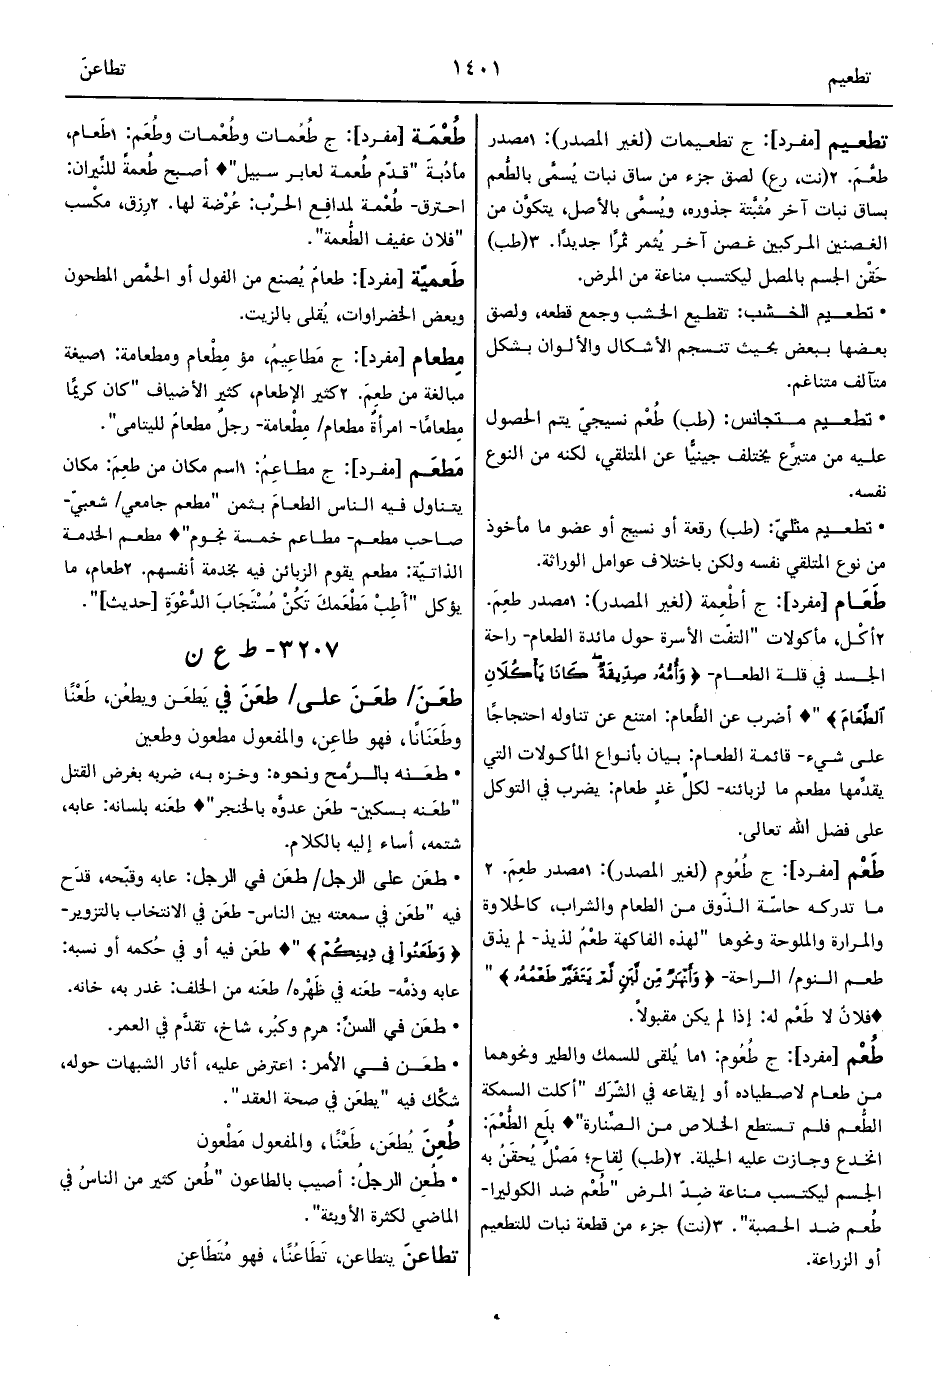 تطعيم
١٤٠١
تطاعنَ
تطعيم [مفرد]: ج تطعيمات (لغير المصدر): ١مصدر
طعَّمَ. ٢(نت، رع) لصق جزء من ساق نبات يُسمَّى بالطُّعم
بساق نبات آخر مُثبَّتة جذوره، ويُسمَّى بالأصل، يتكوَّن من
الغصنين المركبين غصن آخر يُثمر ثمرًا جديدًا. ٣(طب)
حَقْن الجسم بالمصل ليكتسب مناعة من المرض.
• تطعيم الخشب: تقطيع الخشب وجمع قطعه، ولصق
بعضها ببعض بحيث تنسجم الأشكال والألوان بشكل
متآلف متناغم.
• تطعيم متجانس: (طب) طُعْم نسيجيّ يتم الحصول
عليه من متبرِّع يختلف جينيًّا عن المتلقي، لكنه من النوع
نفسه.
• تطعيم مثليّ: (طب) رقعة أو نسيج أو عضو ما مأخوذ
من نوع المتلقي نفسه ولكن باختلاف عوامل الوراثة.
طَعَام [مفرد]: ج أطْعِمة (لغير المصدر): ١مصدر طعِمَ.
٢أكْل، مأكولات "التفّت الأسرة حول مائدة الطعام- راحة
الجسد في قلة الطعام- ﴿ وَأُمُّهُ صِدِّيقَةٌ كَانَا يَأْكُلَانِ
الطَّعَامَ ﴾ "♦ أضرب عن الطَّعام: امتنع عن تناوله احتجاجًا
على شيء- قائمة الطعام: بيان بأنواع المأكولات التي
يقدِّمها مطعم ما لزبائنه- لكلِّ غدٍ طعام: يضرب في التوكل
على فضل الله تعالى.
طَعْم [مفرد]: ج طُعُوم (لغير المصدر): ١مصدر طعِمَ. ٢
ما تدركه حاسّة الذّوق من الطعام والشراب، كالحلاوة
والمرارة والملوحة ونحوها "لهذه الفاكهة طعْمٌ لذيذ- لم يذق
طعم النوم/ الراحة- ﴿ وَأَنْهَارٌ مِن لَّبَنٍ لَّمْ يَتَغَيَّرْ طَعْمُهُ ﴾ "
♦فلانٌ لا طَعْم له: إذا لم يكن مقبولاً.
طُعْم [مفرد]: ج طُعُوم: ١ما يُلقى للسمك والطير ونحوهما
من طعام لاصطياده أو إيقاعه في الشّرَك "أكلت السمكة
الطُّعم فلم تستطع الخلاص من الصنّارة"♦ بلَع الطُّعْمَ:
انخدع وجازت عليه الحيلة. ٢(طب) لِقاح؛ مَصْلٌ يُحقَنُ به
الجسم ليكتسب مناعة ضدّ المرض "طُعْم ضد الكوليرا-
طُعم ضد الحصبة". ٣(نت) جزء من قطعة نبات للتطعيم
أو الزراعة.
طُعْمَة [مفرد]: ج طُعُمات وطُعْمات وطُعَم: ١طَعام،
مأدُبةَ "قدّم طُعمة لعابر سبيل"♦ أصبح طُعمةً للنِّيران:
احترق- طُعْمة لمدافع الحرْب: عُرْضة لها. ٢رِزق، مكسب
"فلان عفيف الطُّعمة".
طَعميَّة [مفرد]: طعامٌ يُصنع من الفول أو الحمّص المطحون
وبعض الخضراوات، يُقلى بالزيت.
مِطعام [مفرد]: ج مَطَاعِيمُ، مؤ مِطْعام ومطعامة: ١صيغة
مبالغة من طعِمَ. ٢كثير الإطعام، كثير الأضياف "كان كريمًا
مِطعامًا- امرأةٌ مطعام/ مِطْعامة- رجلٌ مطعامٌ لليتامى".
مَطعَم [مفرد]: ج مطاعِمُ: ١اسم مكان من طعِمَ: مكان
يتناول فيه الناس الطعامَ بثمن "مطعم جامعي/ شعبيّ-
صاحب مطعم- مطاعم خمسة نجوم"♦ مطعم الخدمة
الذاتيّة: مطعم يقوم الزبائن فيه بخدمة أنفسهم. ٢طعام، ما
يؤكل "أَطِبْ مَطْعَمكَ تَكُنْ مُسْتَجَابَ الدَّعْوَةِ [حديث]".
٣٢٠٧- ط ع ن
طعَنَ/ طعَنَ على/ طعَنَ في يَطعَن ويطعُن، طَعْنًا
وطَعَنَانًا، فهو طاعِن، والمفعول مطعون وطعين
• طعَنه بالرُّمح ونحوه: وخزه به، ضربه بغرض القتل
"طعَنه بسكين- طعَن عدوَّه بالخنجر"♦ طعَنه بلسانه: عابه،
شتمه، أساء إليه بالكلام.
• طعَن على الرجل/ طعَن في الرجل: عابه وقبّحه، قدَح
فيه "طعَن في سمعته بين الناس- طعَن في الانتخاب بالتزوير-
﴿ وَطَعَنُوا فِي دِينِكُمْ ﴾ "♦ طعَن فيه أو في حُكمه أو نسبه:
عابه وذمَّه- طعَنه في ظَهْره/ طعَنه من الخلف: غدر به، خانه.
• طعَن في السنِّ: هرِم وكبُر، شاخ، تقدَّم في العمر.
• طعَن في الأمر: اعترض عليه، أثار الشبهات حوله،
شكَّك فيه "يطعَن في صحة العقد".
طُعِنَ يُطعَن، طَعْنًا، والمفعول مَطْعون
• طُعِن الرجلُ: أصيب بالطاعون "طُعن كثير من الناسُ في
الماضي لكثرة الأوبئة".
تطاعنَ يتطاعن، تَطَاعُنًا، فهو مُتَطَاعِن